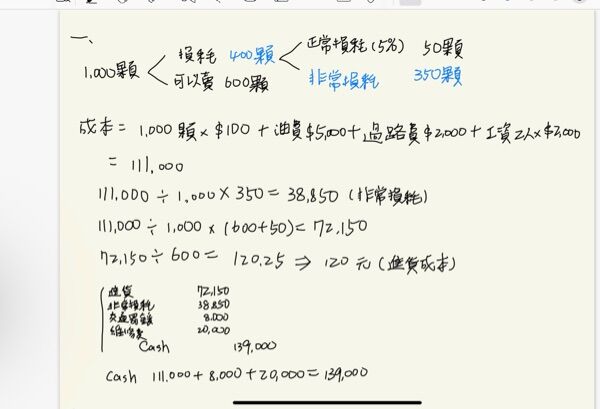 一、
1,000顆 損耗 400顆 正常損耗(5%) 50顆
可以賣 600顆 非常損耗 350顆
成本 = 1,000 顆 × $100 + 油費 $5,000 + 過路費 $2,000 + 工資 2人 × $2,000
= 111,000
111,000 ÷ 1,000 × 350 = 38,850 (非常損耗)
111,000 ÷ 1,000 × (600+50) = 72,150
72,150 ÷ 600 = 120.25 ⇒ 120 元 (進貨成本)
進貨 72,150
非常損耗 38,850
交通罰鍰 8,000
維修費 20,000
Cash 139,000
Cash 111,000 + 8,000 + 20,000 = 139,000